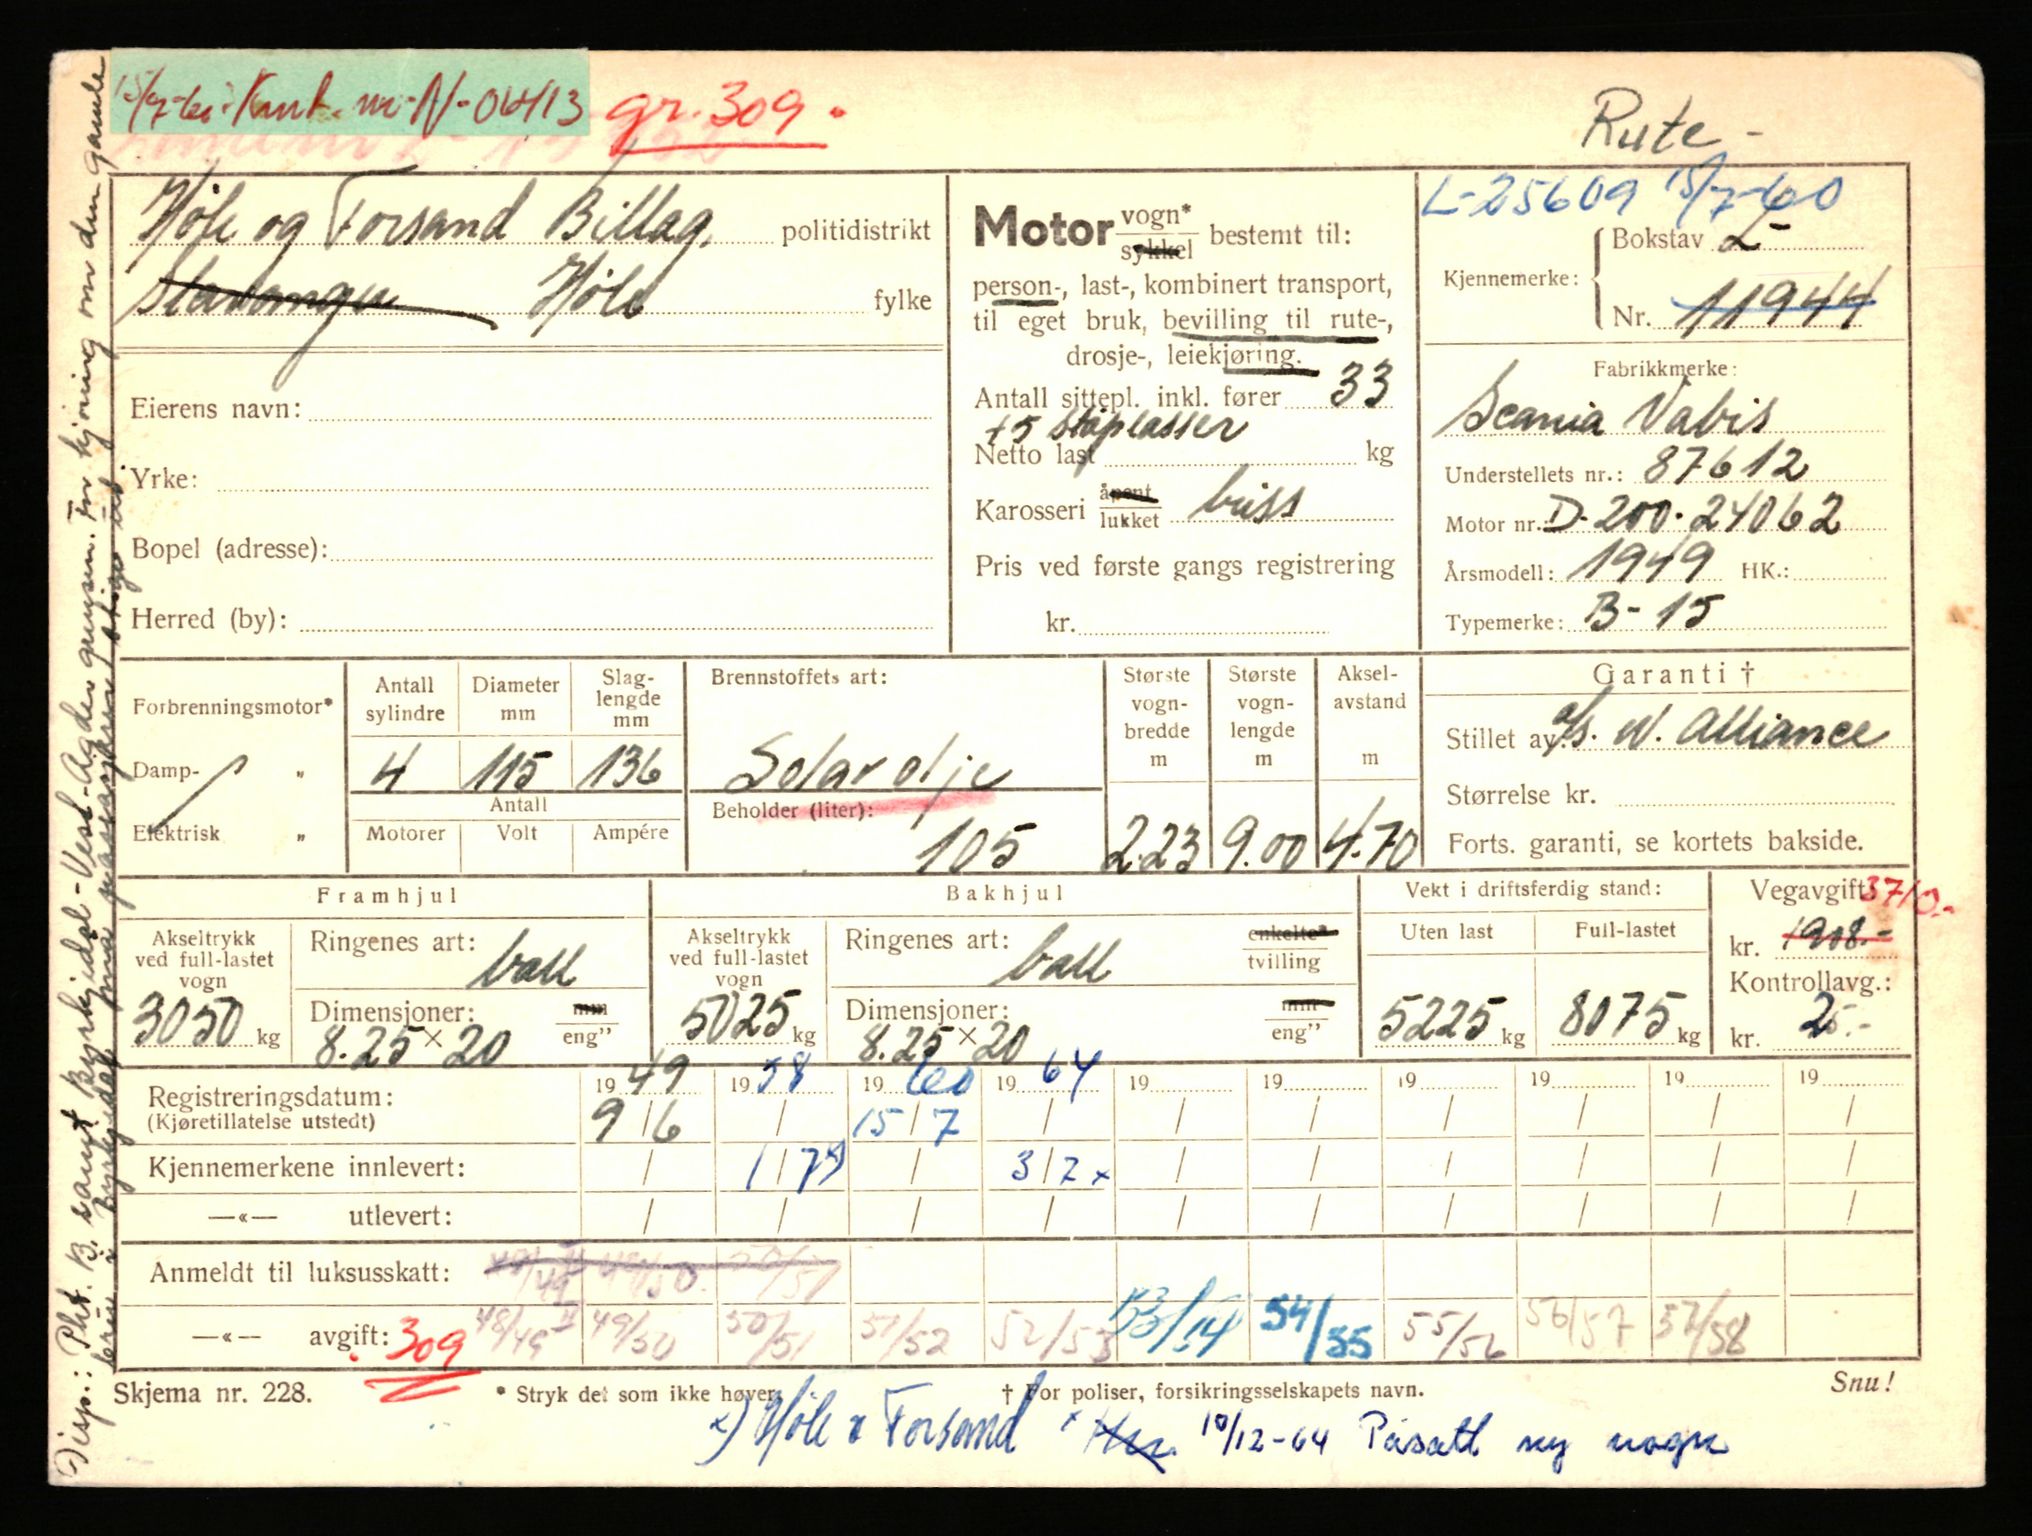 15/7-60. Knt. nr. N-06413 gr. 309.
Rute -
Høle og Forsand Billag, politidistrikt
Stavanger Høle fylke
Eierens navn:
Yrke:
Bopel (adresse):
Herred (by):
Motor vogn* sykkel bestemt til:
person-, last-, kombinert transport,
til eget bruk, bevilling til rute-,
drosje-, leiekjøring.
Antall sittepl. inkl. fører 33
+5 ståplasser
Netto last kg
Karosseri åpent lukket buss
Pris ved første gangs registrering
kr.
L-25609 15/7-60
Kjennemerke: Bokstav L-
Nr. 11944
Fabrikkmerke:
Scania Vabis
Understellets nr.: 87612
Motor nr.: D-200-24062
Årsmodell: 1949 HK.:
Typemerke: B-15
Forbrenningsmotor*
Damp- „
Elektrisk „
Antall sylindre
Diameter mm
Slag-lengde mm
4 115 136
Antall
Motorer Volt Ampére
Brennstoffets art:
Solarolje
Beholder (liter):
105
Største vogn-bredde m
2.23
Største vogn-lengde m
9.00
Aksel-avstand m
4.70
Garanti †
Stillet av: a/s. N. Alliance
Størrelse kr.
Forts. garanti, se kortets bakside.
Framhjul
Akseltrykk ved full-lastet vogn
3050 kg
Ringenes art: ball
Dimensjoner: mm eng"
8.25 × 20
Bakhjul
Akseltrykk ved full-lastet vogn
5025 kg
Ringenes art: ball enkelte* tvilling
Dimensjoner: mm eng"
8.25 × 20
Vekt i driftsferdig stand:
Uten last Full-lastet
5225 kg 8075 kg
Vegavgift: 3710.-
kr. 1908.-
Kontrollavg.:
kr. 25.-
Registreringsdatum: 19 49 19 58 19 60 19 64 19 19 19 19 19 19
(Kjøretillatelse utstedt) 9/6 / 15/7 / / / / / / /
Kjennemerkene innlevert: / 1/7 x) / 3/2 x / / / / / /
—«— utlevert: / / / / / / / / / /
Anmeldt til luksusskatt: 48/49 II 49/50. 50/51
—«— avgift: 309 48/49 II 49/50 50/51 51/52 52/53 53/54 54/55 55/56 56/57 57/58
Skjema nr. 228. * Stryk det som ikke høver. † For poliser, forsikringsselskapets navn. Snu!
x) Høle & Forsand x 10/12-64 Påsatt ny vogn
Disp.: Pkt. B. samt Byrkjedal - Vest-Agder grensen. For kjøring om den gamle
veien i Byrkjedal må passasjerene stige ut